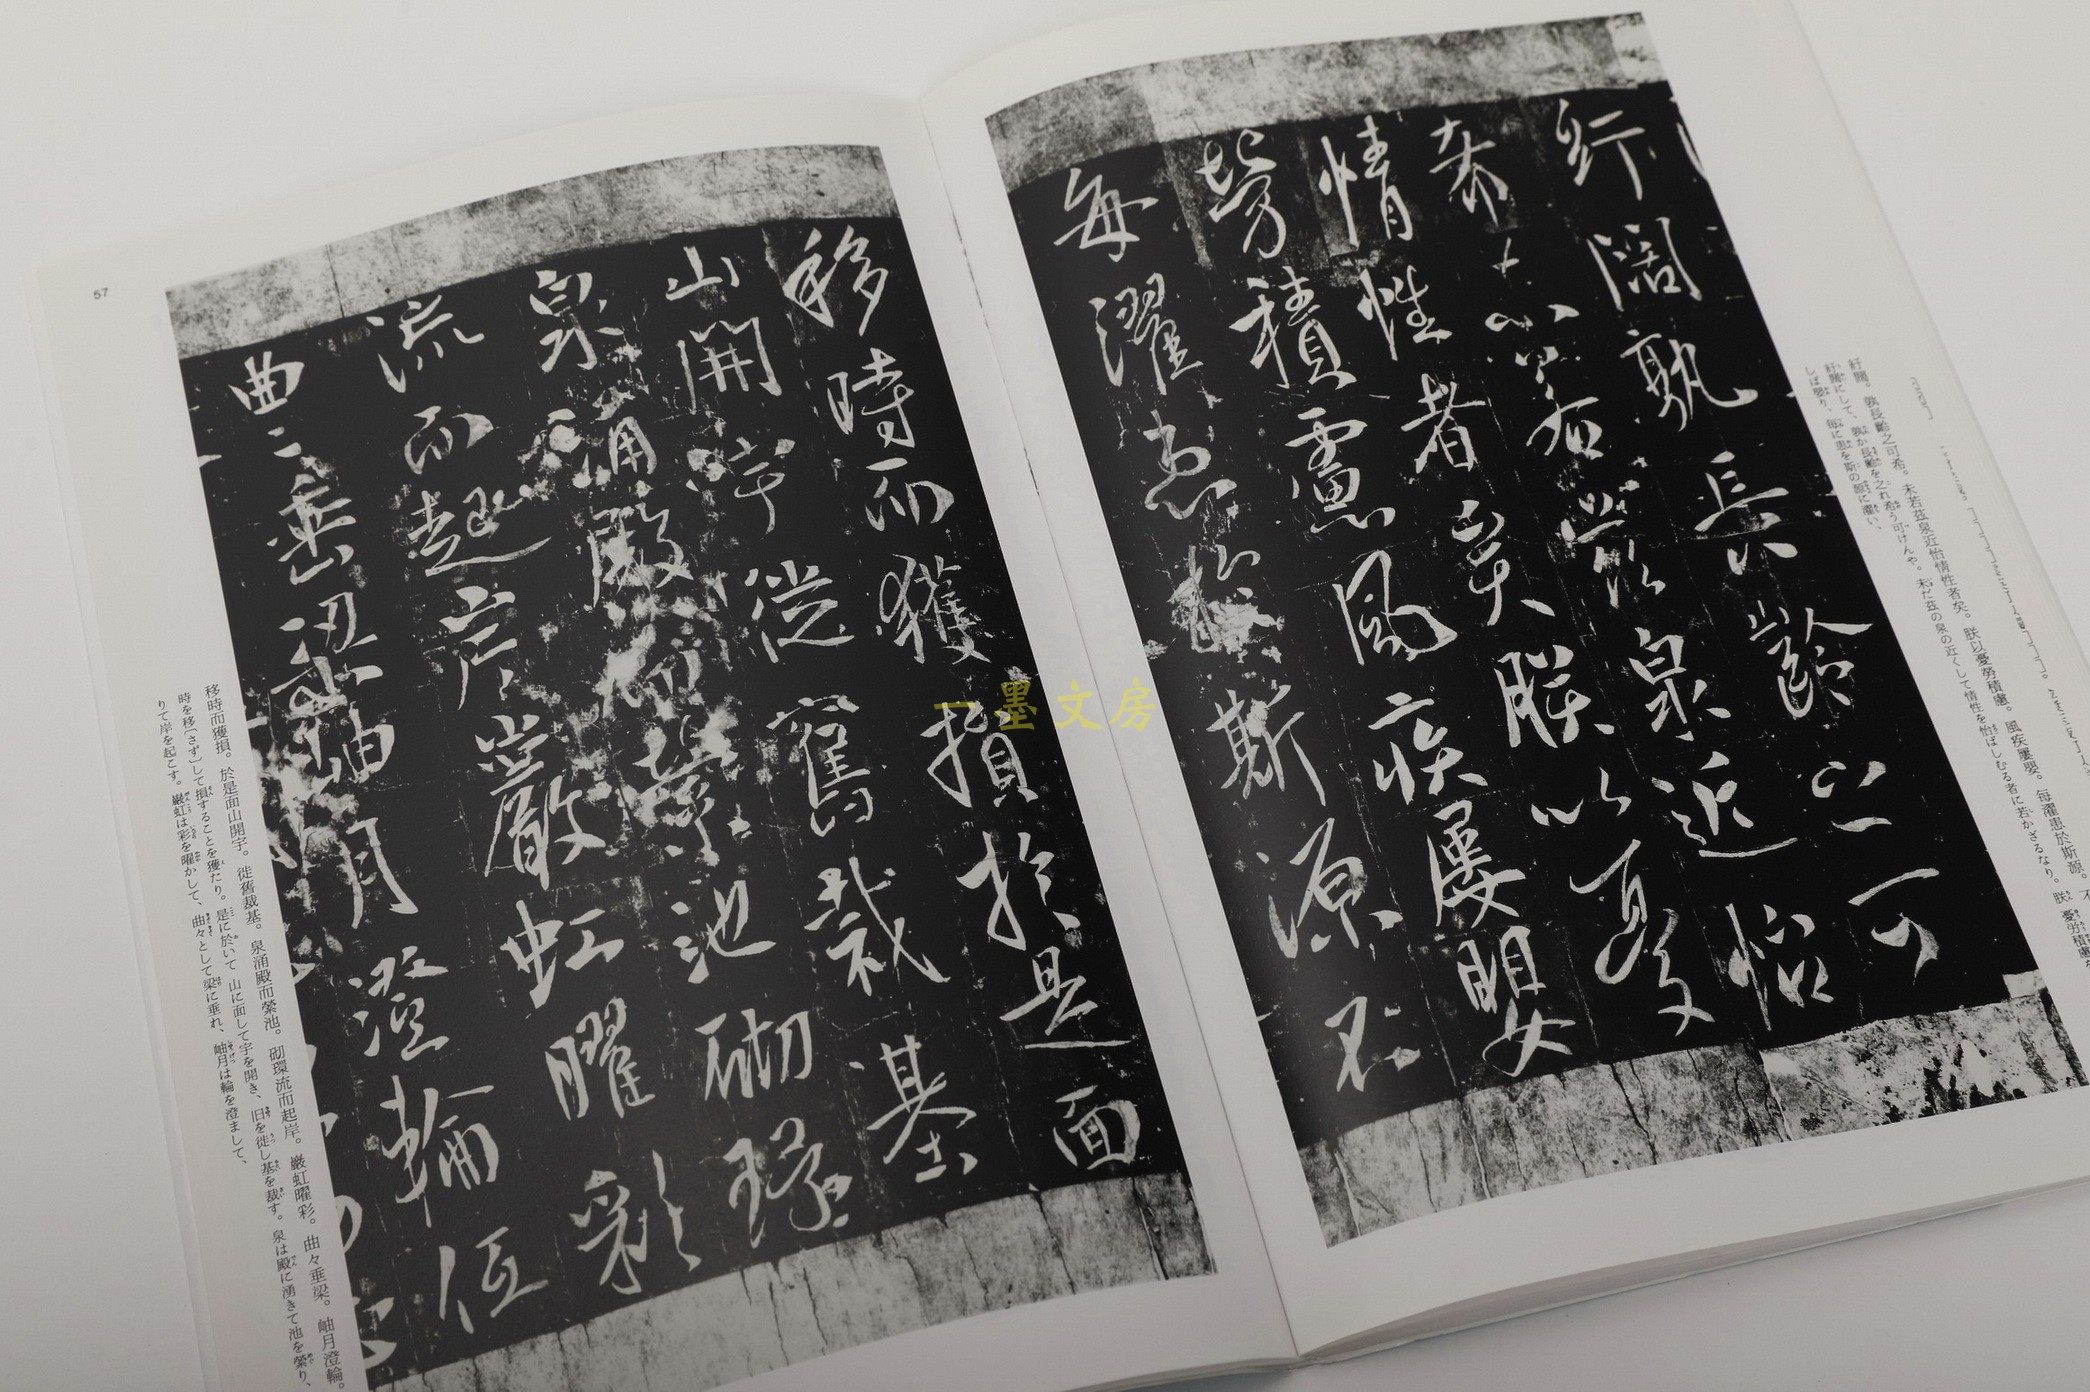 紆闊孰長齡之可
希未若茲泉近怡
情性者矣朕以憂
勞積慮風疾屢嬰
每濯患於斯源不
紆闊。孰長齡之可希。未若茲泉近怡情性者矣。朕以憂勞積慮。風疾屢嬰。每濯患於斯源。不
紆闊にして、孰か長齢を之れ希う可けんや。未だ茲の泉の近くして情性を怡ばしむる者に若かざるなり。朕 憂労積慮を
しば嬰り、毎に患を斯の源に濯い、
移時而獲損於是面
山開宇徙舊裁基
泉涌殿而縈池砌環
流而起岸巖虹曜彩
曲〻垂梁岫月澄輪低
移時而獲損。於是面山開宇。徙舊裁基。泉涌殿而縈池。砌環流而起岸。巖虹曜彩。曲々垂梁。岫月澄輪。
時を移(さず)して損することを獲たり。是に於いて 山に面して宇を開き、旧を徙し基を裁す。泉は殿に湧きて池を縈り、
りて岸を起こす。巖虹は彩を曜かして、曲々として梁に垂れ、岫月は輪を澄まして、
57
一墨文房